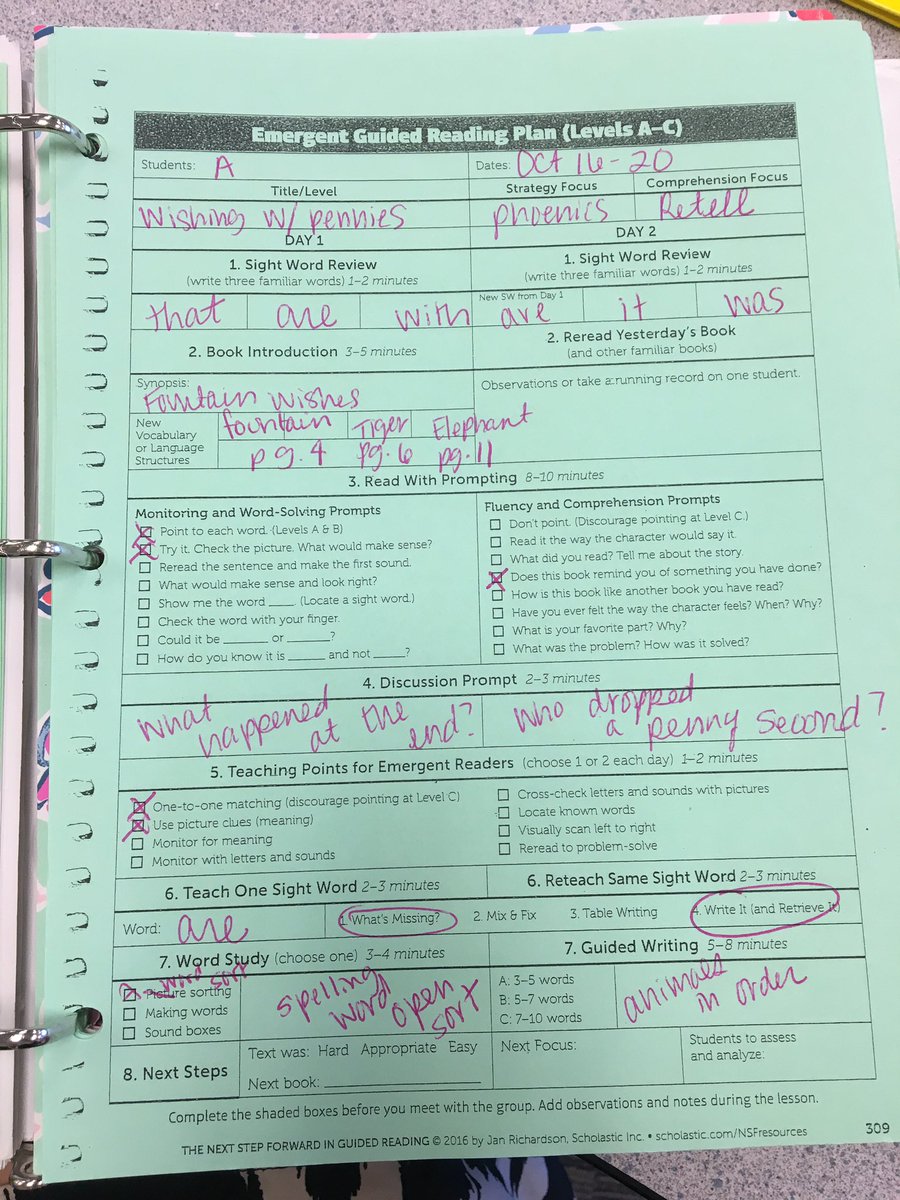 Emergent Guided Reading Plan (Levels A–C)
Students: A Dates: Oct 16-20
Title/Level Strategy Focus Comprehension Focus
Wishing w/ pennies phoenics Retell
DAY 1 DAY 2
1. Sight Word Review 1. Sight Word Review
(write three familiar words) 1–2 minutes (write three familiar words) 1–2 minutes
New SW from Day 1
that are with are it was
2. Book Introduction 3–5 minutes 2. Reread Yesterday's Book
(and other familiar books)
Synopsis: Observations or take a running record on one student.
Fountain wishes
New Vocabulary or Language Structures
fountain Tiger Elephant
pg. 4 pg. 6 pg. 11
3. Read With Prompting 8–10 minutes
Monitoring and Word-Solving Prompts
Point to each word. (Levels A & B)
Try it. Check the picture. What would make sense?
Reread the sentence and make the first sound.
What would make sense and look right?
Show me the word ____. (Locate a sight word.)
Check the word with your finger.
Could it be _______ or _______?
How do you know it is ______ and not _____?
Fluency and Comprehension Prompts
Don't point. (Discourage pointing at Level C.)
Read it the way the character would say it.
What did you read? Tell me about the story.
Does this book remind you of something you have done?
How is this book like another book you have read?
Have you ever felt the way the character feels? When? Why?
What is your favorite part? Why?
What was the problem? How was it solved?
4. Discussion Prompt 2–3 minutes
What happened at the end?
Who dropped a penny second?
5. Teaching Points for Emergent Readers (choose 1 or 2 each day) 1–2 minutes
One-to-one matching (discourage pointing at Level C)
Use picture clues (meaning)
Monitor for meaning
Monitor with letters and sounds
Cross-check letters and sounds with pictures
Locate known words
Visually scan left to right
Reread to problem-solve
6. Teach One Sight Word 2–3 minutes 6. Reteach Same Sight Word 2–3 minutes
Word: are 1. What's Missing? 2. Mix & Fix 3. Table Writing 4. Write It (and Retrieve It)
7. Word Study (choose one) 3–4 minutes 7. Guided Writing 5–8 minutes
word sort
Picture sorting
Making words
Sound boxes
spelling word open sort
A: 3–5 words
B: 5–7 words
C: 7–10 words
animals in order
8. Next Steps
Text was: Hard Appropriate Easy
Next book: ____________________
Next Focus:
Students to assess and analyze:
Complete the shaded boxes before you meet with the group. Add observations and notes during the lesson.
THE NEXT STEP FORWARD IN GUIDED READING © 2016 by Jan Richardson, Scholastic Inc. • scholastic.com/NSFresources 309